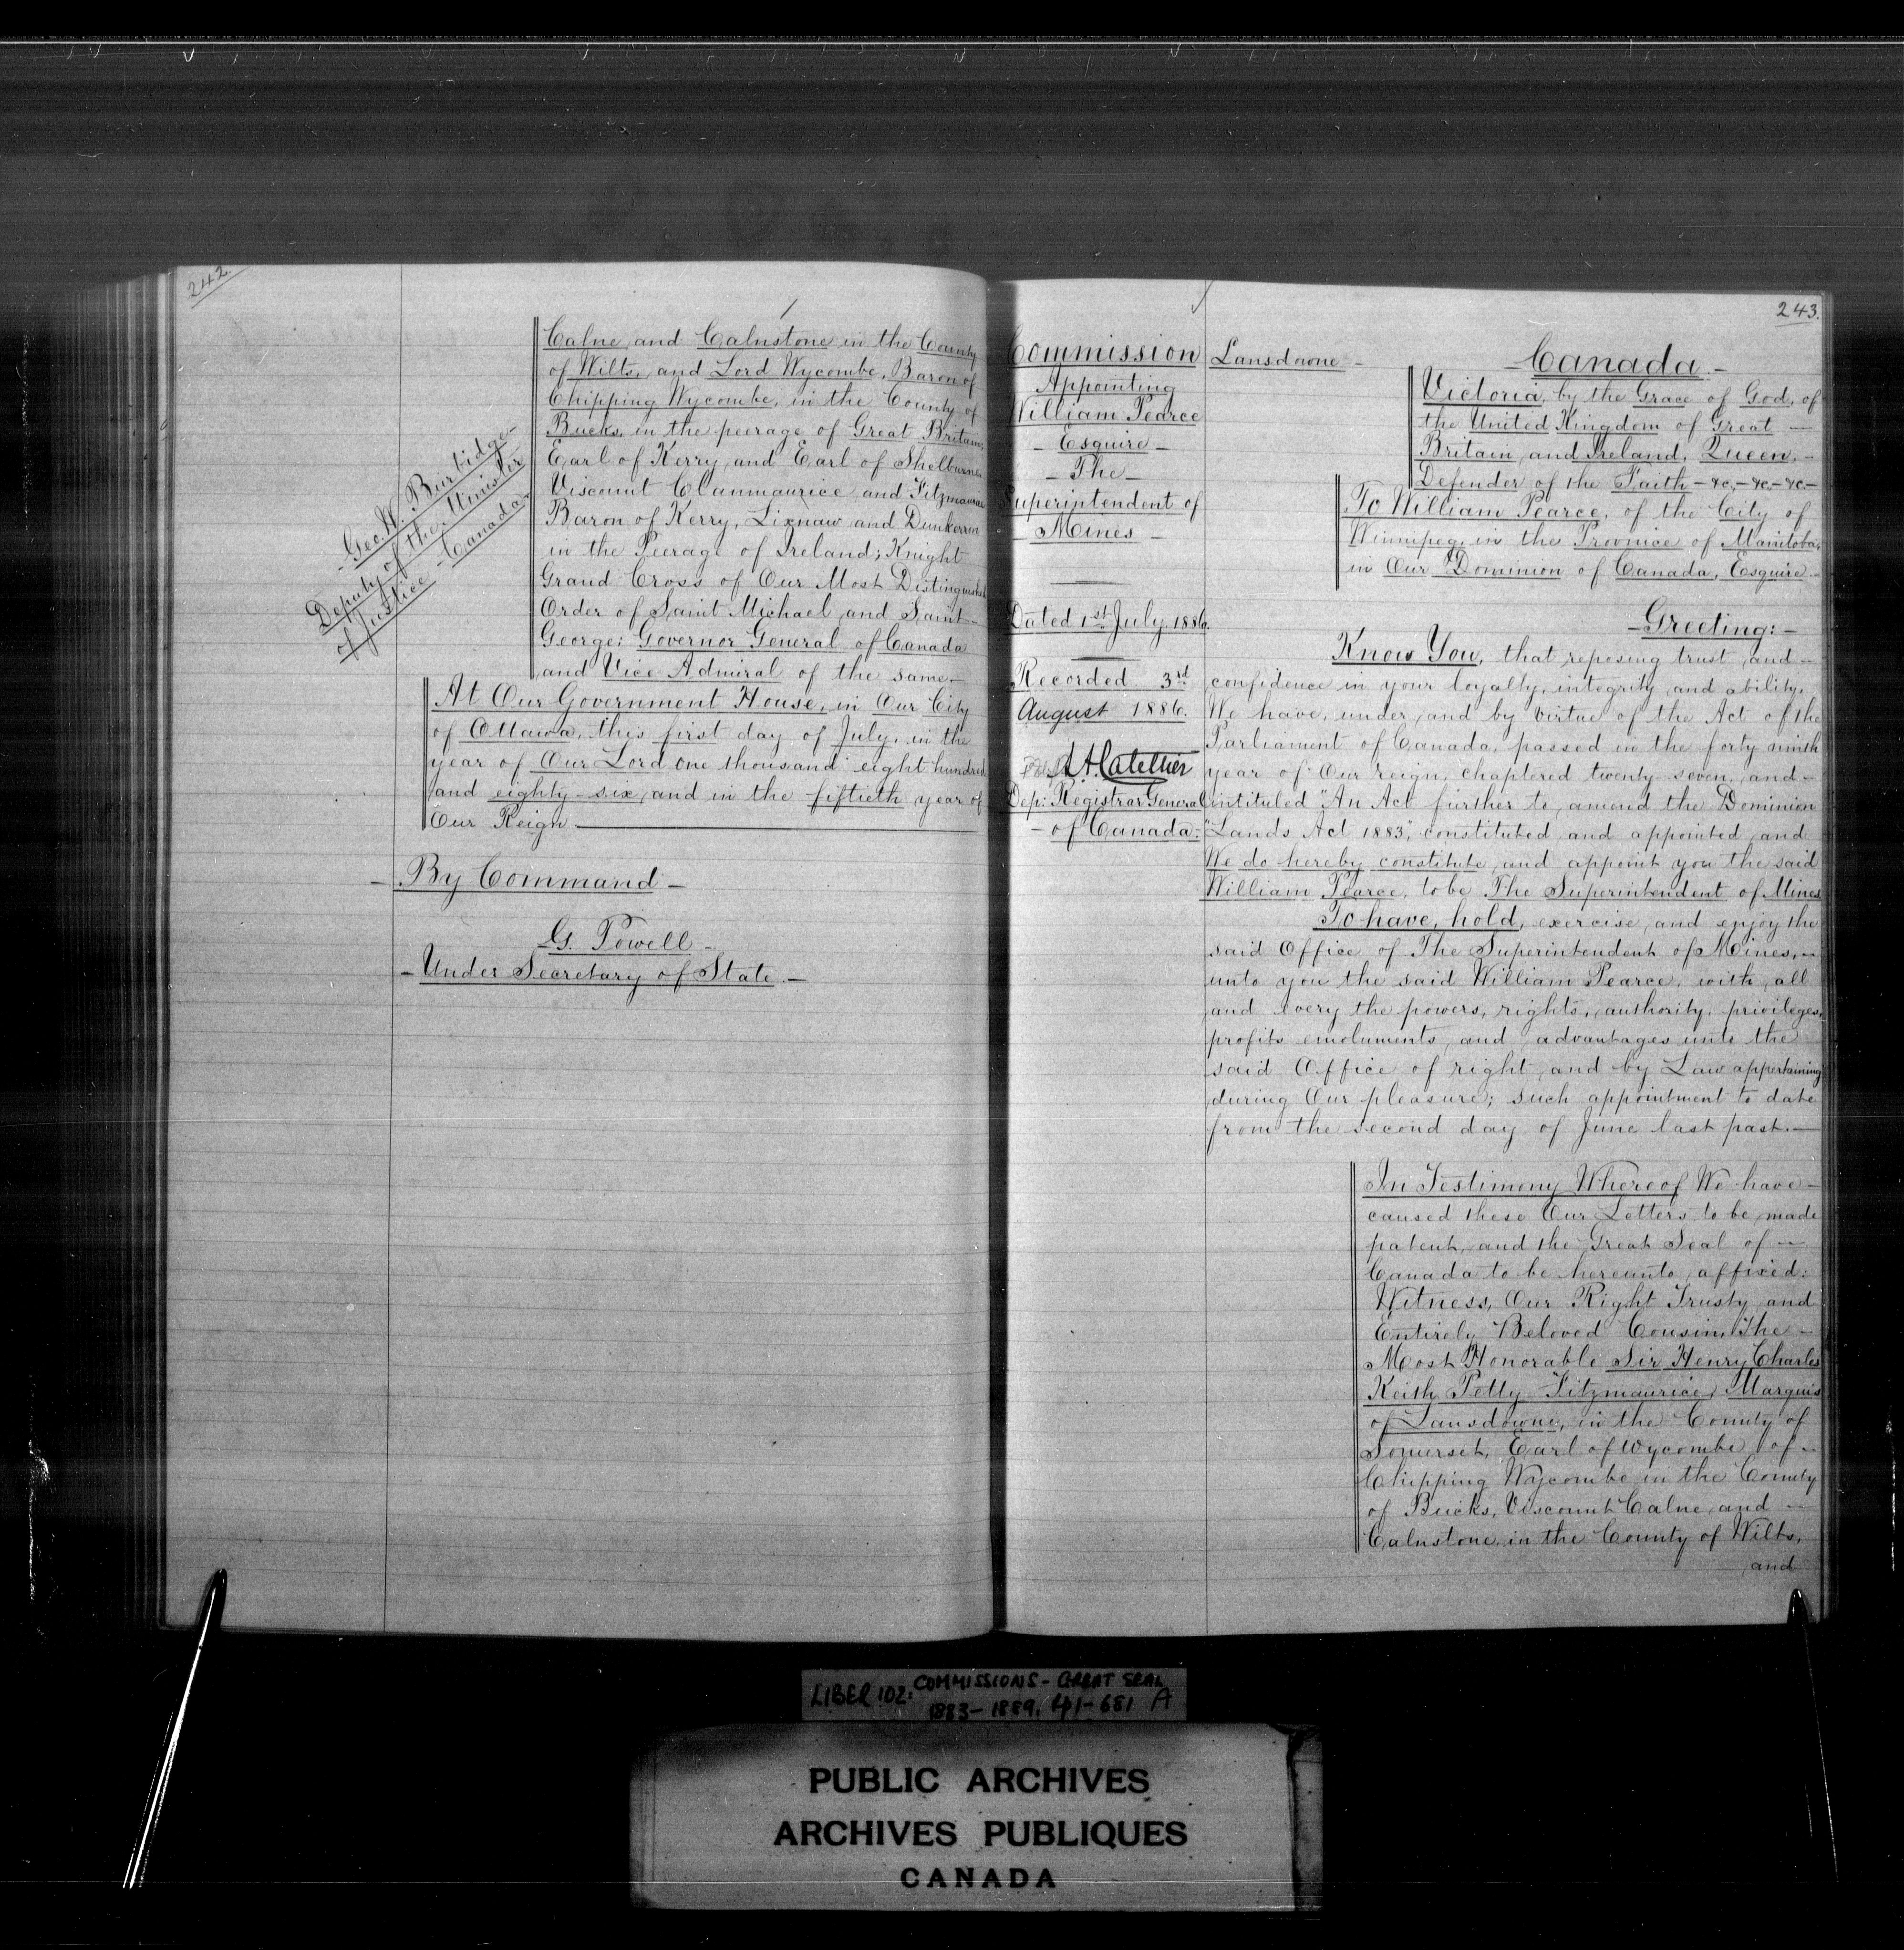 242.
Calne and Calnstone in the County
of Wilts, and Lord Wycombe, Baron of
Chipping Wycombe, in the County of
Bucks, in the peerage of Great Britain;
Earl of Kerry and Earl of Shelburne
Viscount Clanmaurice and Fitzmaurice
Baron of Kerry, Lixnaw and Dunkerron
in the Peerage of Ireland; Knight
Grand Cross of Our Most Distinguished
Order of Saint Michael and Saint
George; Governor General of Canada
and Vice Admiral of the same —
Geo. W. Burbidge —
Deputy of the Minister
of Justice - Canada -
At Our Government House, in Our City
of Ottawa, this first day of July, in the
year of Our Lord one thousand eight hundred
and eighty-six, and in the fiftieth year of
Our Reign. —
— By Command —
G. Powell —
— Under Secretary of State. —
243.
Commission
Appointing
William Pearce
— Esquire —
— The —
Superintendent of
— Mines —
Dated 1st July 1886.
Recorded 3rd
August 1886.
L A Catellier
Dep: Registrar General
— of Canada:
Lansdowne —
— Canada. —
Victoria, by the Grace of God, of
the United Kingdom of Great —
Britain and Ireland, Queen, —
Defender of the Faith — &c, — &c, — &c —
To William Pearce, of the City of
Winnipeg, in the Province of Manitoba,
in Our Dominion of Canada, Esquire —
— Greeting: —
Know You, that reposing trust and —
confidence in your loyalty, integrity and ability.
We have, under and by virtue of the Act of the
Parliament of Canada, passed in the forty ninth
year of Our reign, chaptered twenty-seven, and —
intituled "An Act further to amend the Dominion
"Lands Act 1883", constituted and appointed, and
We do hereby constitute and appoint you the said
William Pearce, to be The Superintendent of Mines
To have, hold, exercise and enjoy the
said Office of The Superintendent of Mines, —
unto you the said William Pearce, with all
and every the powers, rights, authority, privileges,
profits emoluments, and advantages unto the
said Office of right and by Law appertaining
during Our pleasure; such appointment to date
from the second day of June last past. —
In Testimony Whereof We have —
caused these Our Letters to be made
patent, and the Great Seal of —
Canada to be hereunto affixed:
Witness, Our Right Trusty and
Entirely Beloved Cousin, The —
Most Honorable Sir Henry Charles
Keith Petty Fitzmaurice, Marquis
of Lansdowne, in the County of
Somerset, Earl of Wycombe, of —
Chipping Wycombe in the County
of Bucks, Viscount Calne and —
Calnstone, in the County of Wilts,
and
LIBER 102: COMMISSIONS - GREAT SEAL
1883 - 1889, 41-681 A
PUBLIC ARCHIVES
ARCHIVES PUBLIQUES
CANADA